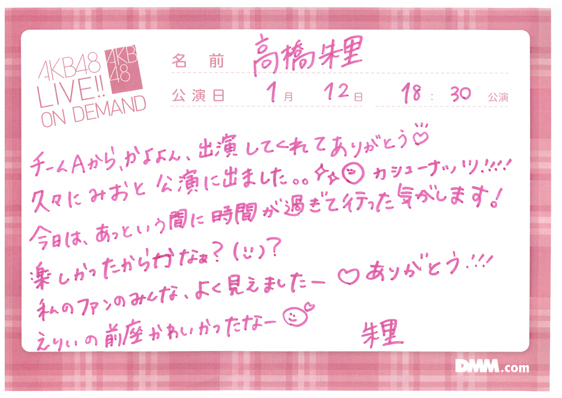 AKB48
LIVE!!
ON DEMAND
AKB
48
名 前 高橋朱里
公演日 1月 12日 18:30 公演
チームAから、かよよん、出演してくれてありがとう♡
久々にみおと公演に出ました。。カシューナッツ!!!!
今日は、あっという間に時間が過ぎて行った気がします!
楽しかったからかなぁ?(:))?
私のファンのみんな、よく見えましたー ♡ありがとう!!!
えりぃの前座かわいかったなー
朱里
DMM.com